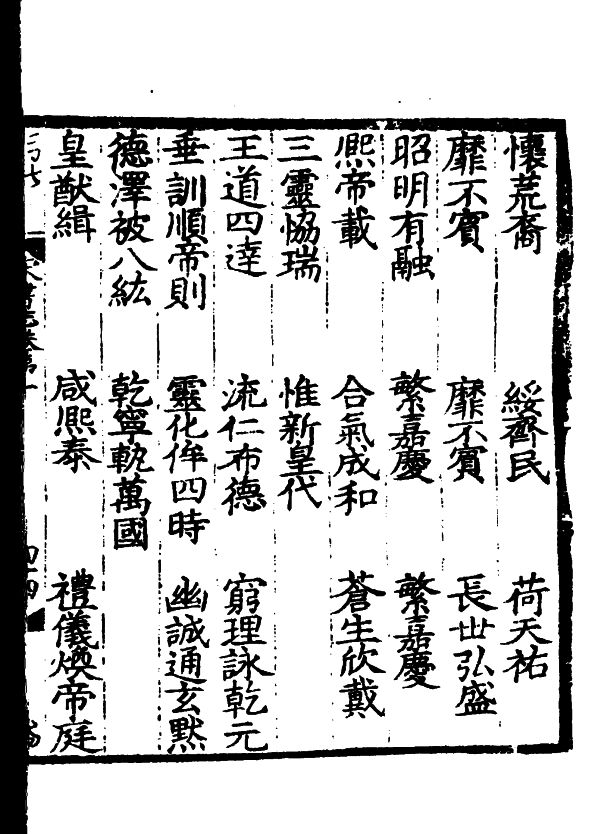 懷荒裔　綏齊民　荷天祐
靡不賓　靡不賓　長世弘盛
昭明有融　繁嘉慶　繁嘉慶
熙帝載　合氣成和　蒼生欣戴
三靈協瑞　惟新皇代
王道四達　流仁布德　窮理詠乾元
垂訓順帝則　靈化侔四時　幽誠通玄默
德澤被八紘　乾寧軌萬國
皇猷緝　咸熙泰　禮儀煥帝庭